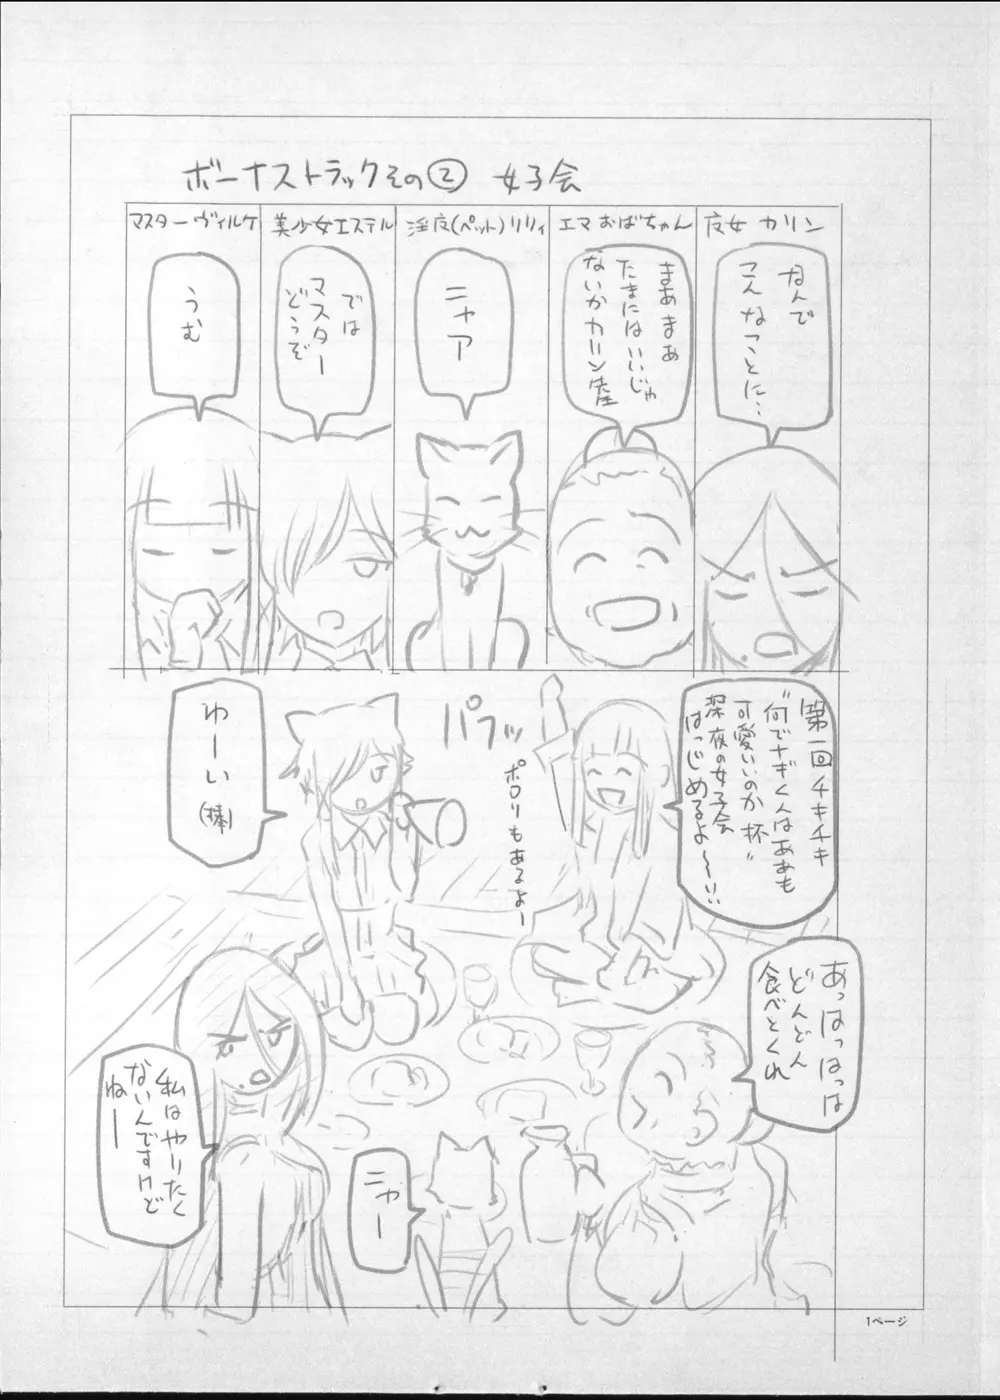 ボーナストラックその② 女子会
夜女 カリン
エマおばちゃん
淫夜(ペット)リリィ
美少女エステル
マスターヴィルケ
なんで
こんなことに…
まあまあ
たまにはいいじゃ
ないかカリン
ニャア
では
マスター
どうぞ
うむ
第一回チキチキ
"何でナギくんはああも
可愛いいのか 杯"
深夜の女子会
はっじめるよ～いい
パフッ
ポロリもあるよー
わーい
(棒)
あっはっはっは
どんどん
食べとくれ
私はやりたく
ないんですけど
ねー
ニャー
1ページ